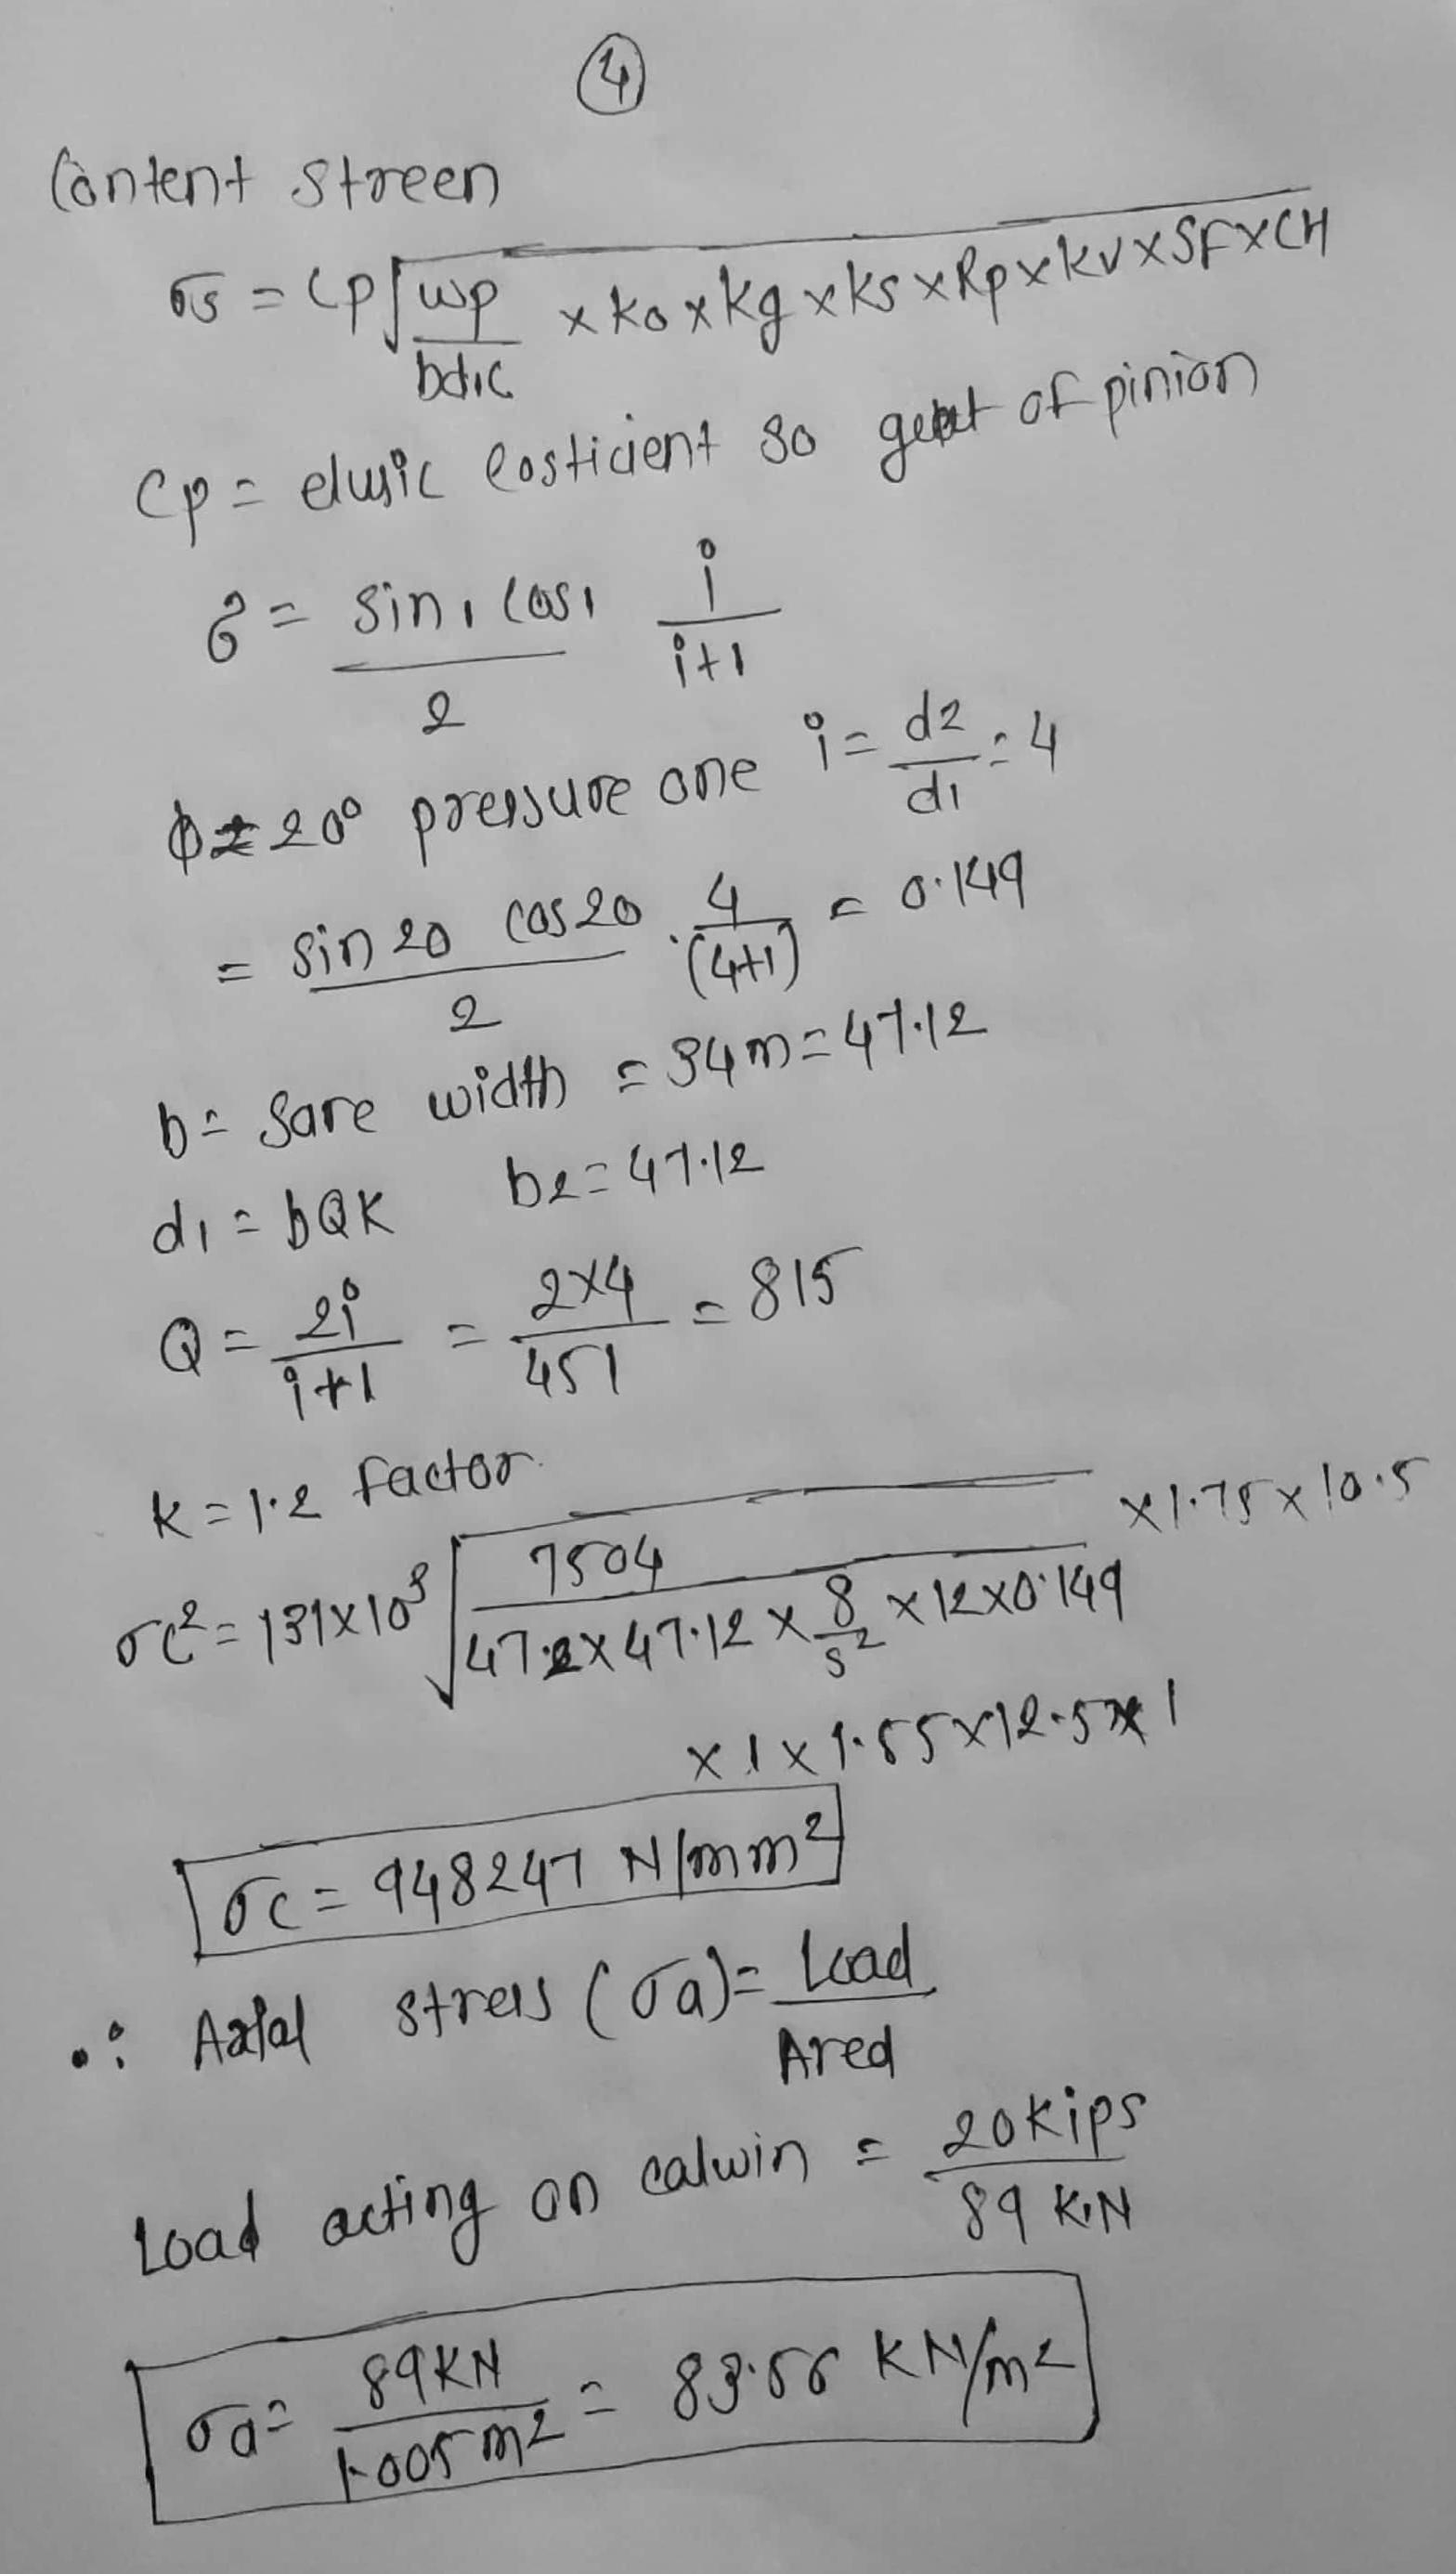 4
Content streen
σs = Cp √ wp / bd1c × ko × kg × ks × Rp × kv × SF × CH
Cp = elusic costicient so of pinion
= sin1 cos1 / 2 i / i+1
φ = 20° pressure one i = d2 / d1 = 4
= sin 20 cos 20 / 2 . 4 / (4+1) = 0.149
b = sare width = 34m = 47.12
d1 = bQK b2 = 47.12
Q = 2i / i+1 = 2×4 / 451 = 815
K = 1.2 factor
σc² = 131×10³ √ 7504 / 47.2 × 47.12 × 8 / s² × 12 × 0.149 × 1.75 × 10.5
× 1 × 1.55 × 12.5 × 1
σc = 948247 N/mm²
∴ Axial stress (σa) = Load / Area
Load acting on calwin = 20 kips / 89 KN
σa = 89 KN / 1.005 m² = 83.56 KN/m²